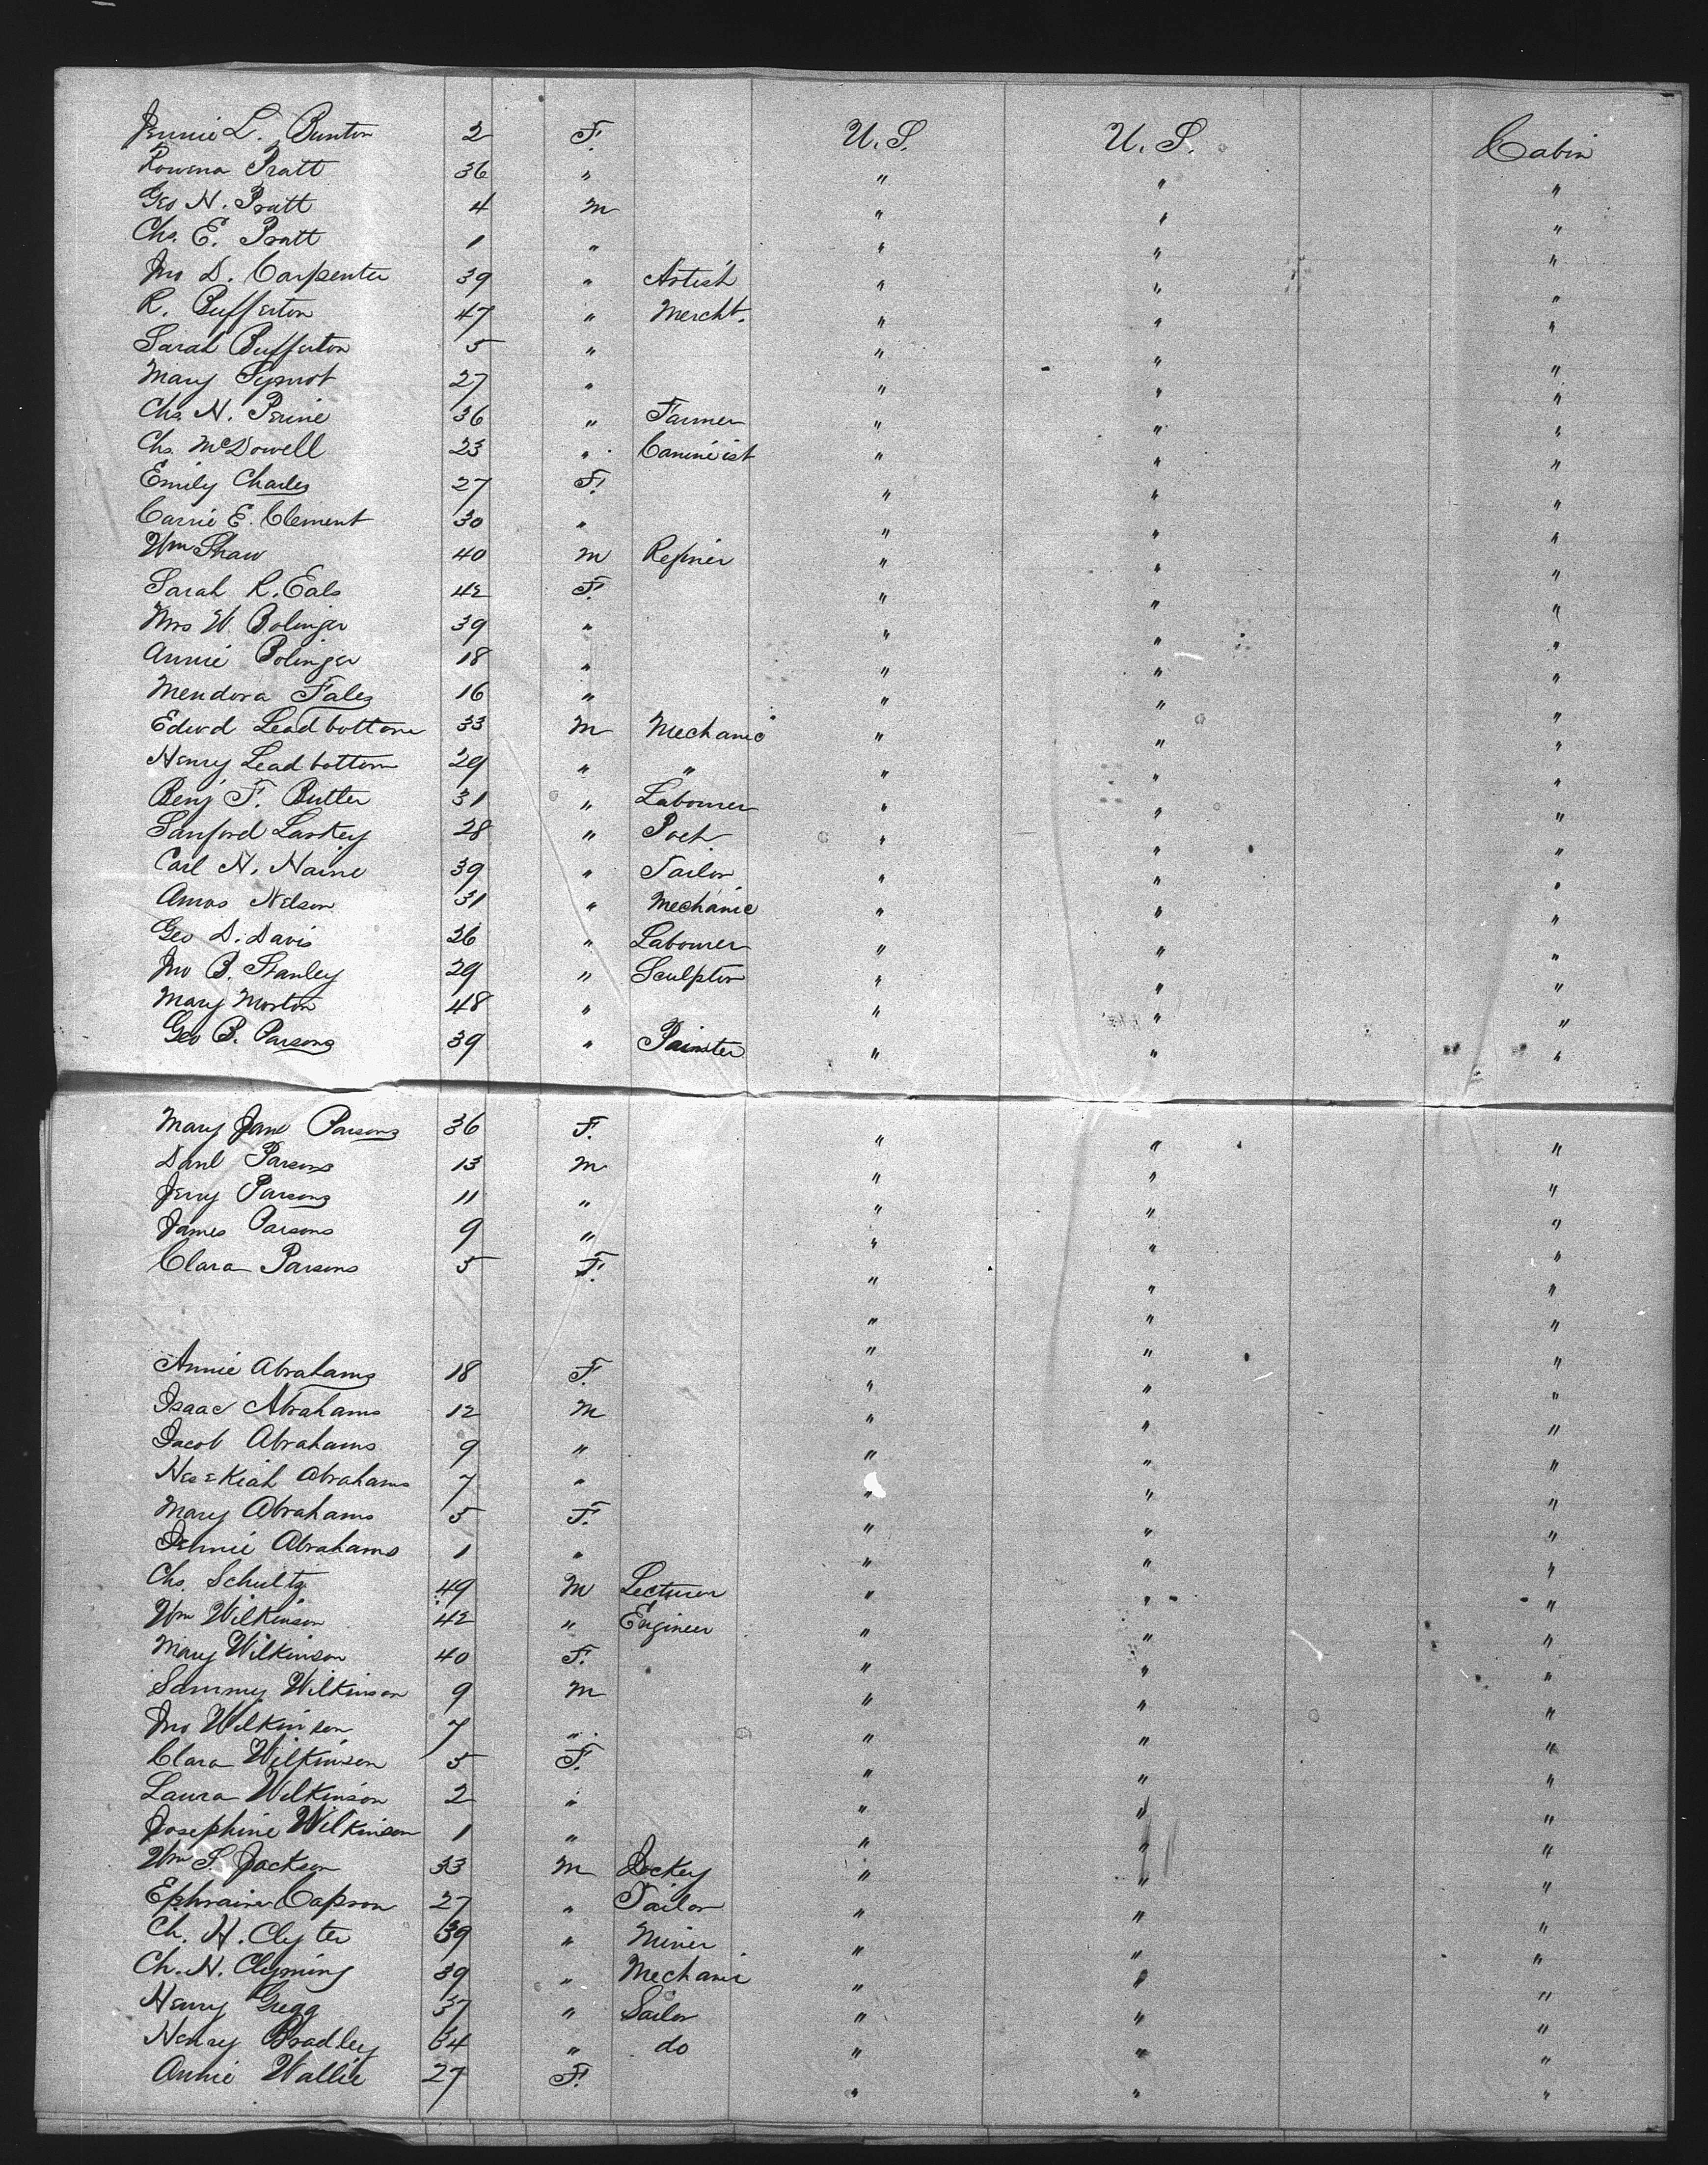 Jennie L. Bunton 2 F. U.S. U.S. Cabin
Rowena Pratt 36 " " " "
Geo H. Pratt 4 m " " "
Chs. E. Pratt 1 " " " "
Jno D. Carpenter 39 " Artist " " "
R. Bufferton 47 " Mercht. " " "
Sarah Bufferton 5 " " " "
Mary 27 " " " "
Chs. H. Perine 36 " Farmer " " "
Chs. McDowell 23 " " " "
Emily Charles 27 F. " " "
Carrie E. Clement 30 " " " "
Wm Shaw 40 m Refiner " " "
Sarah R. Eals 42 F. " " "
Mrs W. Bolinger 39 " " " "
Annie Bolinger 18 " " " "
Mendora Fales 16 " " " "
Edwd Leadbottom 33 m Mechanic " " "
Henry Leadbottom 29 " " " " "
Benj F. Butler 31 " Labourer " " "
Sanford Laskey 28 " Poet " " "
Carl N. Naine 39 " Tailor " " "
Amos Nelson 31 " Mechanic " " "
Geo D. Davis 26 " Labourer " " "
Jno B. Stanley 29 " Sculptor " " "
Mary Morton 48 " " " "
Geo B. Parsons 39 " Painter " " "
Mary Jane Parsons 36 F. " " "
Danl Parsons 13 m " " "
Jerry Parsons 11 " " " "
James Parsons 9 " " " "
Clara Parsons 5 F. " " "
" " "
" " "
Annie Abrahams 18 F. " " "
Isaac Abrahams 12 M " " "
Jacob Abrahams 9 " " " "
Hesekiah Abrahams 7 " " " "
Mary Abrahams 5 F. " " "
Jennie Abrahams 1 " " " "
Chs. Schultz 49 M Lecturer " " "
Wm Wilkinson 42 " Engineer " " "
Mary Wilkinson 40 F. " " "
Sammy Wilkinson 9 m " " "
Jno Wilkinson 7 " " " "
Clara Wilkinson 5 F. " " "
Laura Wilkinson 2 " " " "
Josephine Wilkinson 1 " " " "
Wm S. Jackson 33 m Jockey " " "
Ephraim Capron 27 " Tailor " " "
Ch. H. Clyter 39 " Miner " " "
Ch. H. Clyming 39 " Mechanic " " "
Henry Gregg 37 " Sailor " " "
Henry Bradley 64 " do " " "
Annie Wallie 27 F. " " "